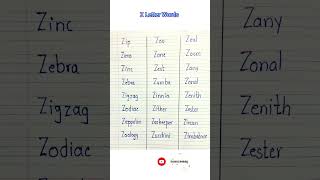 Z Letter Words
Zip Zoo Zeal
Zero Zone Zoom
Zinc Zest Zany
Zebra Zumba Zonal
Zigzag Zinnia Zenith
Zodiac Zither Zester
Zeppelin Zookeeper Zircon
Zoology Zucchini Zimbabwe
Zinc
Zebra
Zigzag
Zodiac
Zany
Zonal
Zenith
Zester